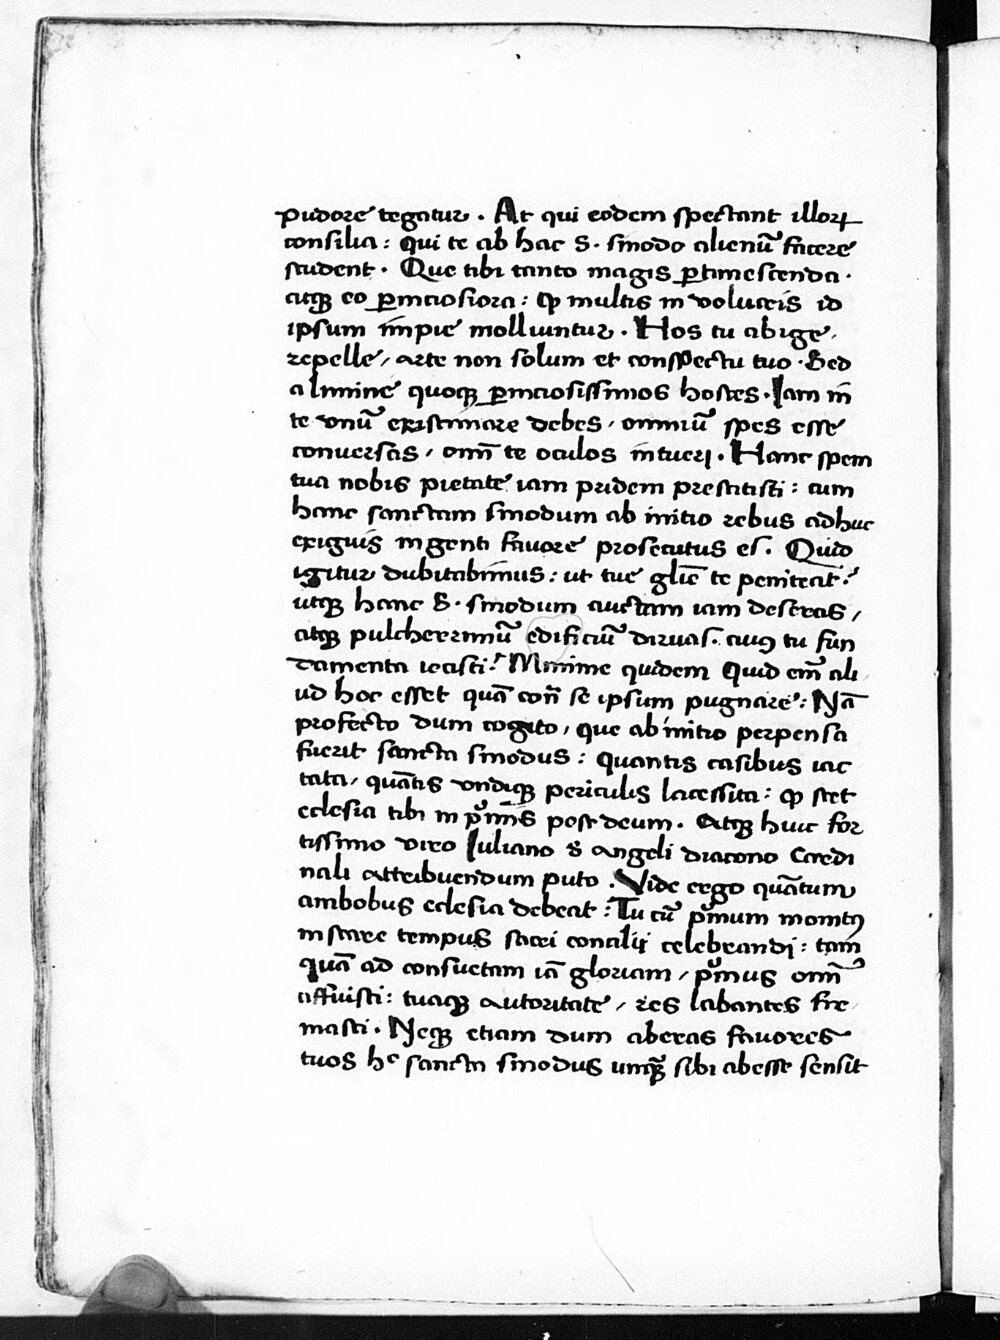 pudore tegatur . At qui eodem spectant illoꝝ
consilia : qui te ab hac S . sinodo alienū facere
student . Que tibi tanto magis ꝑtimescenda .
atqꝫ eo ꝑniciosiora : ꝙ multis in volucris id
ipsum impie molliuntur . Hos tu abige ,
repelle , arte non solum et conspectu tuo . Sed
a limine quoqꝫ ꝑniciosissimos hostes . Iam in̄
te vnū existimare debes , omniū spes esse
conversas , om̄ te oculos intueri . Hanc spem
tua nobis pietate iam pridem prestitisti : cum
hanc sanctam sinodum ab initio rebus adhuc
exiguis ingenti favore prosecutus es . Quid
igitur dubitabimus : ut tue gl̄ie te peniteat ?
utqꝫ hanc S . sinodum auctam iam deseras ,
atqꝫ pulcherrimū edificiū diruas . cuiꝰ tu fun
damenta iecisti ? Minime quidem Quid em̄ ali
ud hoc esset quā con̄ se ipsum pugnare : Nā
profecto dum cogito , que ab initio perpensa
fuerit sancta sinodus : quantis casibus iac
tata , quātis vndiqꝫ periculis lacessita : ꝙ stet
eclesia tibi in pⁱmis post deum . Atqꝫ huic for
tissimo viro Iuliano S angeli diacono Cardi
nali attribuendum puto . Vide ergo quātum
ambobus eclesia debeat : Tu cū pⁱmum
instare tempus sacri concilii celebrandi : tam
quā ad consuetam iā gloriam , pⁱmus om̄
affuisti : tuaqꝫ autoritate , res labantes fir
masti . Neqꝫ etiam dum aberas favores
tuos hᵉ sancta sinodus umqꝫ sibi abesse sensit